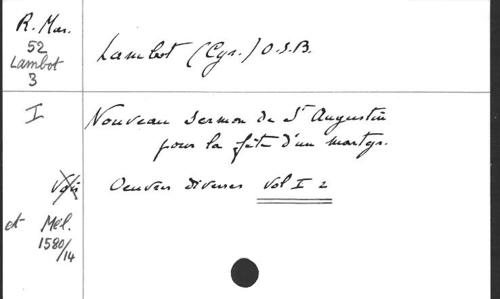 R. Mar.
52
Lambot
3
Lambot (Cyr.) O.S.B.
I
Nouveau sermon de St Augustin
pour la fête d'un martyr.
Voir
Oeuvres diverses Vol I 2
et Mél.
1580/14